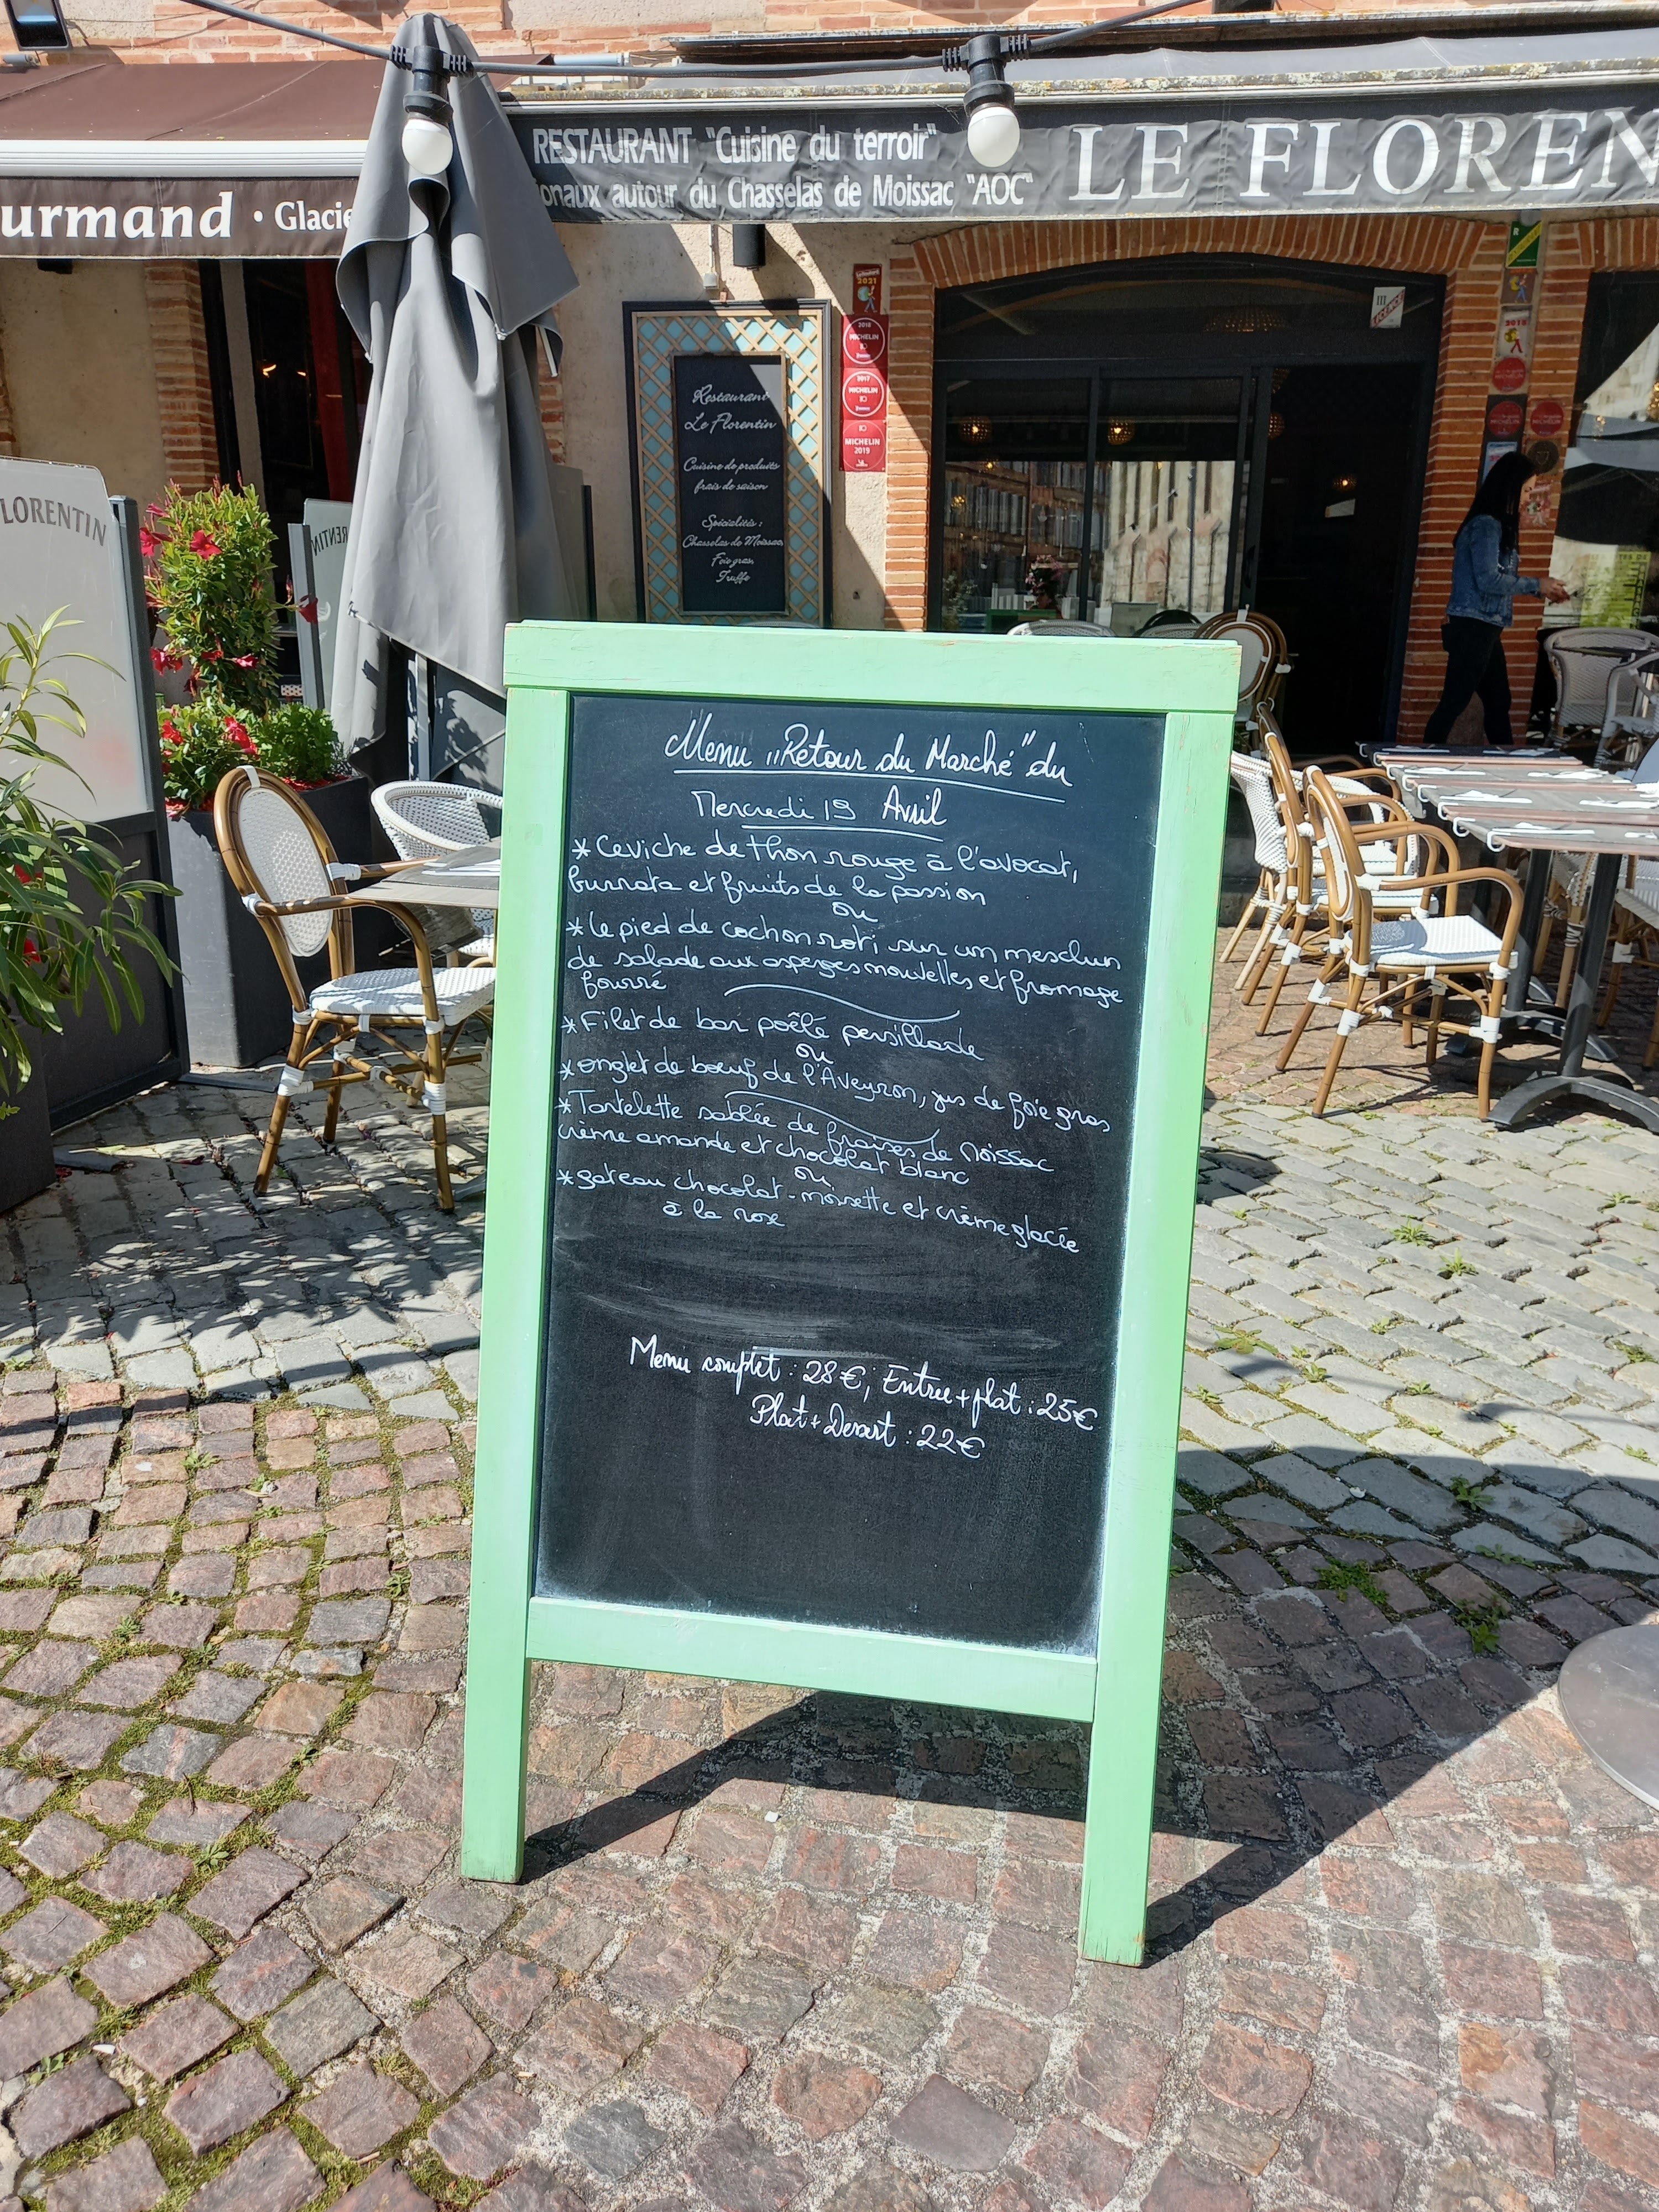 RESTAURANT "Cuisine du terroir"
onaux autour du Chasselas de Moissac "AOC"
LE FLOREN
urmand • Glacie
LORENTIN
RENTIN
2021
2018
MICHELIN
2017
MICHELIN
MICHELIN
2019
III
LICENCE
R
2018
Restaurant
Le Florentin
Cuisine de produits
frais de saison
Spécialités :
Chasselas de Moissac
Foie gras
Truffe
Menu "Retour du Marché" du
Mercredi 19 Avril
* Ceviche de thon rouge à l'avocat,
burrata et fruits de la passion
ou
* Le pied de cochon roti sur un mesclun
de salade aux asperges nouvelles et fromage
fourré
* Filet de bar poêlé persillade
ou
* onglet de boeuf de l'Aveyron, jus de foie gras
* Tartelette sablée de fraises de Moissac
crème amande et chocolat blanc
ou
* gateau chocolat-noisette et crème glacée
à la rose
Menu complet : 28€; Entree + plat : 25€
Plat + Dessert : 22€